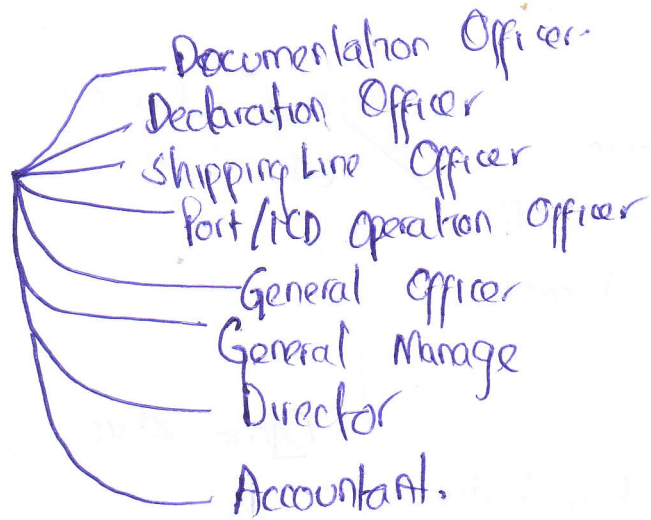 Documentation Officer.
Declaration Officer
Shipping Line Officer
Port/ICD Operation Officer
General Officer
General Manage
Director
Accountant.